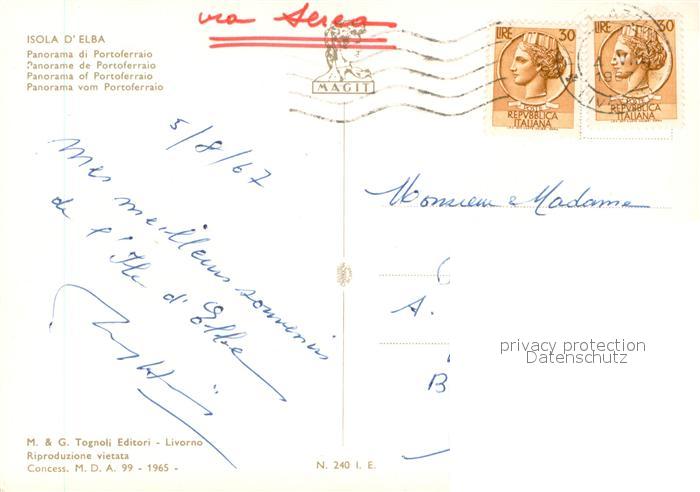 via aerea
ISOLA D' ELBA
Panorama di Portoferraio
Panorame de Portoferraio
Panorama of Portoferraio
Panorama vom Portoferraio
MAGIT
LIRE 30
POSTE
REPVBBLICA
ITALIANA
LIRE 30
POSTE
REPVBBLICA
ITALIANA
5/8/67
Mes meilleurs souvenirs
de l'Ile d'Elbe
Monsieur & Madame
A.
B
privacy protection
Datenschutz
M. & G. Tognoli Editori - Livorno
Riproduzione vietata
Concess. M. D. A. 99 - 1965 -
N. 240 I. E.